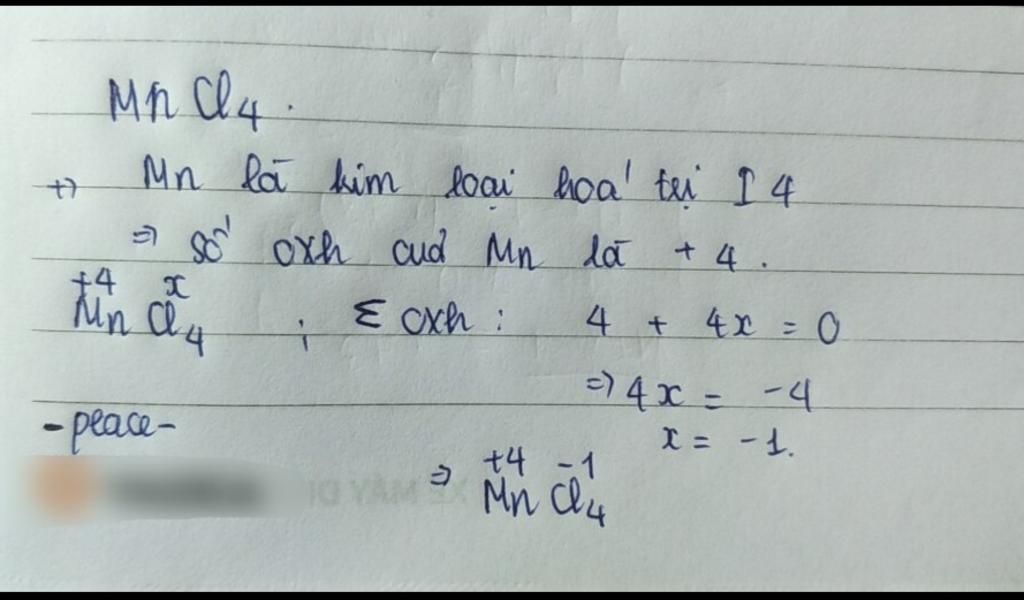 MnCl₄.
+) Mn là kim loại hoá trị I 4
⇒ số oxh của Mn là + 4.
+4 x
MnCl₄ ; Σ oxh : 4 + 4x = 0
⇒ 4x = -4
-peace-
x = -1.
+4 -1
⇒ MnCl₄